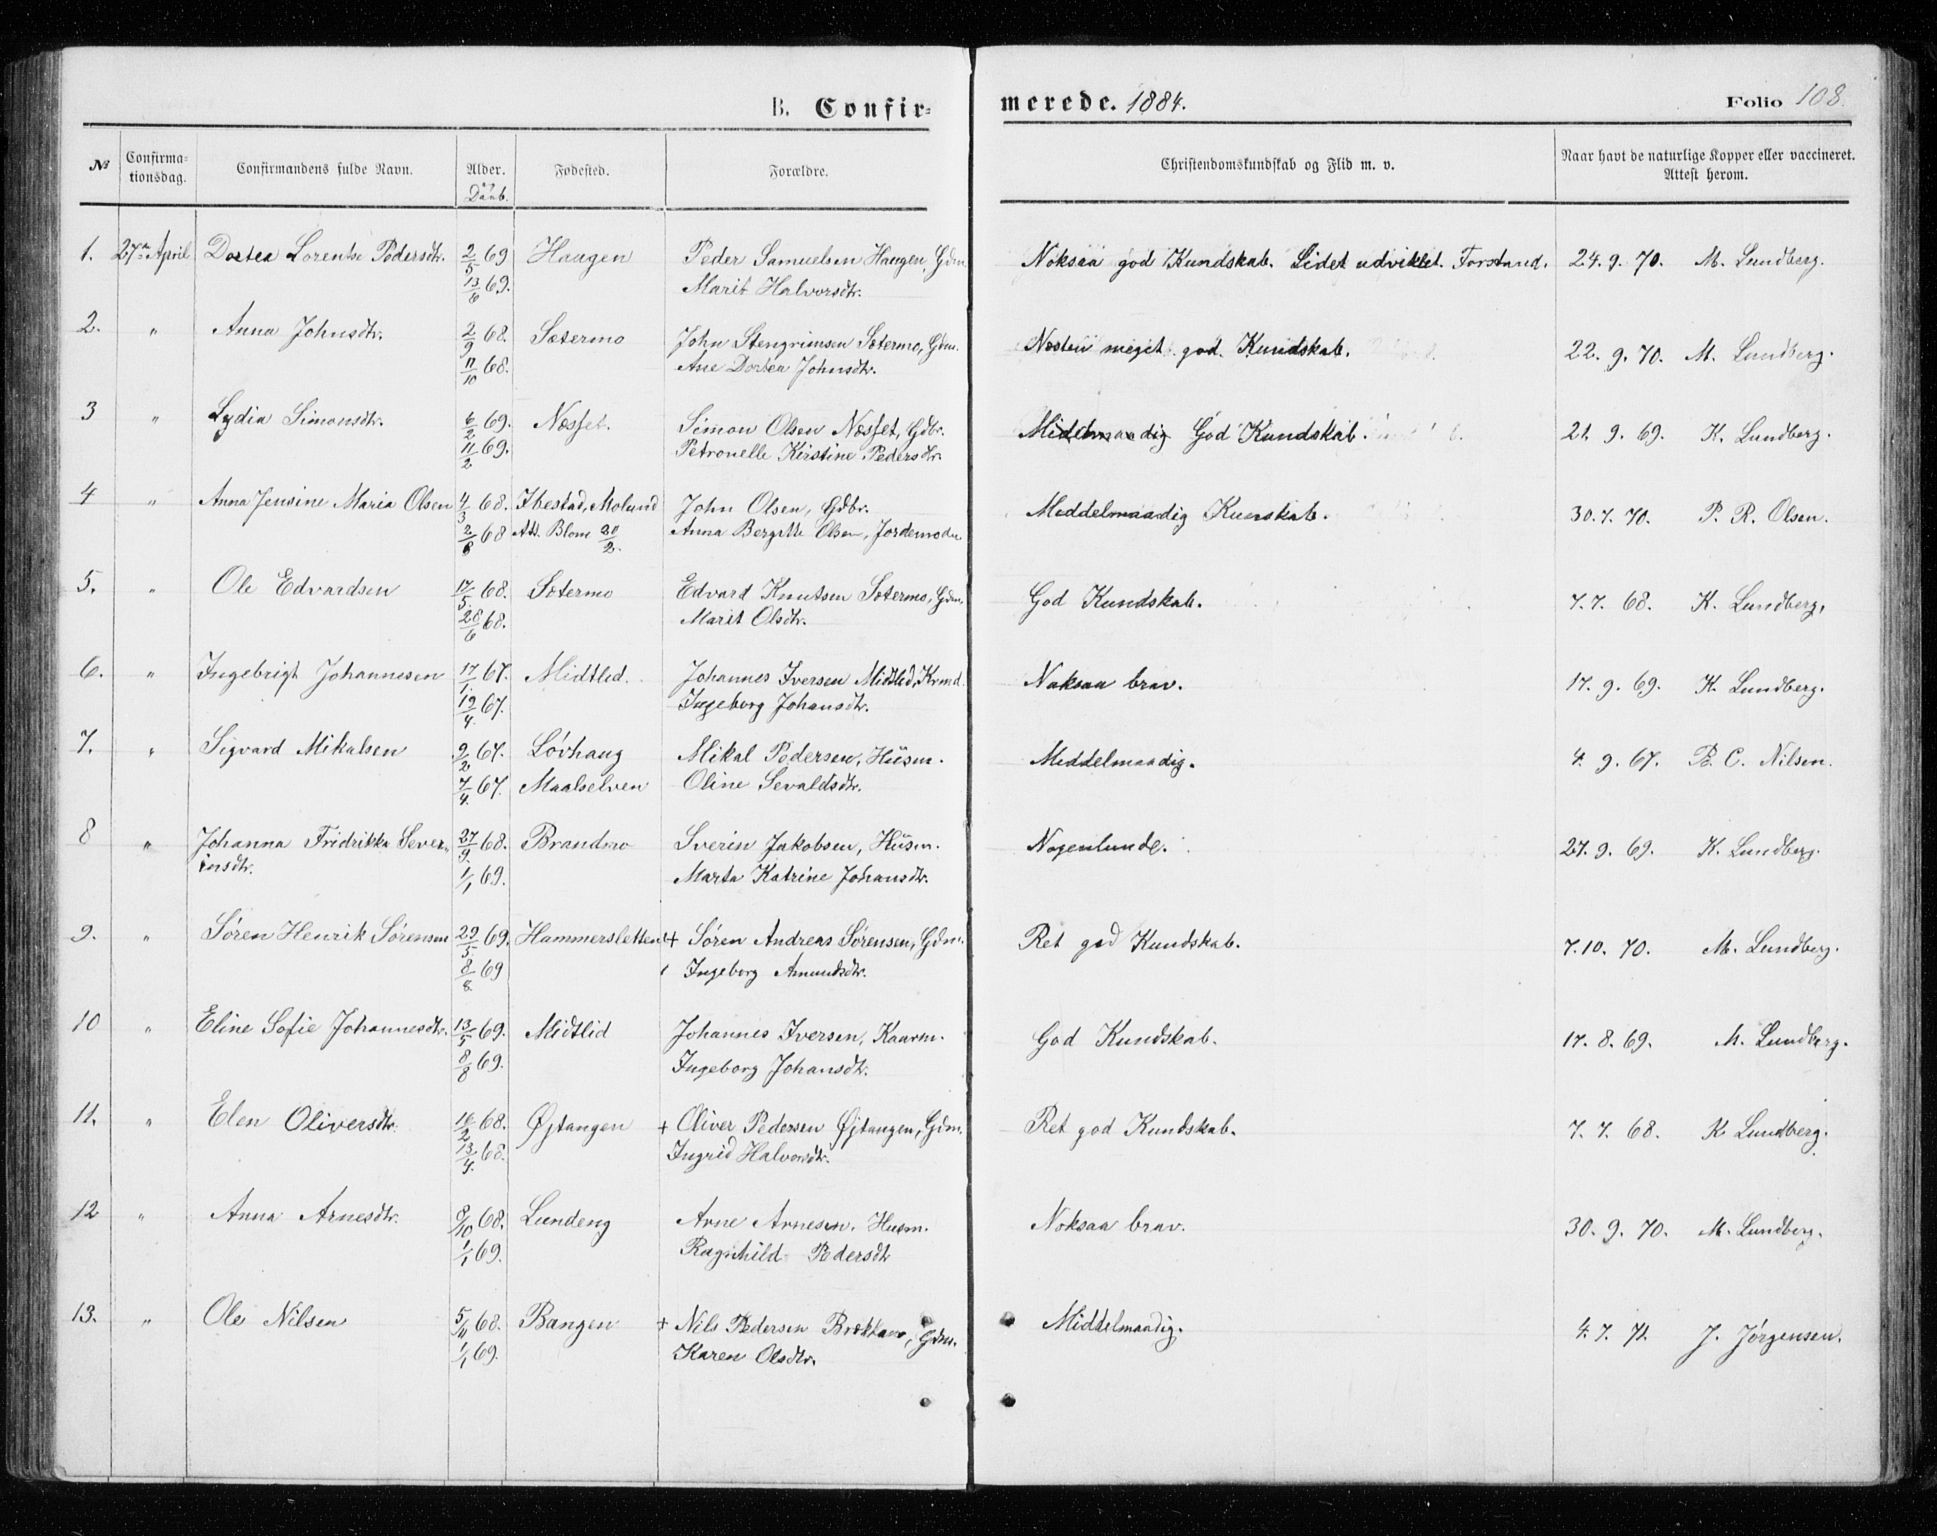 B. Confir- merede. 1884. Folio 108.
№ Confirma- tionsdag. Confirmandens fulde Navn. Alder. Daab. Fødested. Forældre. Christendomskundskab og Flid m. v. Naar havt de naturlige Kopper eller vaccineret. Attest herom.
1. 27de April Dortea Lorentse Pedersdtr. 2/5 69 Haugen Peder Samuelsen Haugen, Gdm. Noksaa god Kundskab. Lidet udviklet Forstand. 24. 9. 70. M. Lundberg.
13/6 69. Marit Halvorsdtr.
2. " Anna Johnsdtr. 2/9 68. Sætermo John Stengrimsen Sætermo, Gdm. Næsten meget god Kundskab. 22. 9. 70. M. Lundberg.
11/10 68. Ane Dortea Johnsdtr.
3 " Lydia Simonsdtr. 6/2 69. Næsset. Simon Olsen Næsset, Gdbr. Middelmaadig God Kundskab. 21. 9. 69. K. Lundberg.
11/2 69. Petronelle Kirstine Pedersdtr.
4 " Anna Jensine Maria Olsen 4/3 68. Ibestad, Molund John Olsen, Gdbr. Middelmaadig Kunskab. 30. 7. 70. P. R. Olsen.
2/8 68 Att. Blom 20/2. Anna Bergitte Olsen, Jordemoder
5. " Ole Edvardsen 17/5 68. Sætermo Edvard Knutsen Sætermo, Gdm. God Kundskab. 7. 7. 68. K. Lundberg,
28/6 68. Marit Olsdtr.
6. " Ingebrigt Johannesen 17/1 67. Midtlid. Johannes Iversen Midtlid, Krmd. Noksaa brav. 17. 9. 69. K. Lundberg.
19/4 67. Ingeborg Johansdtr.
7. " Sigvard Mikalsen 9/2 67. Løvhaug Mikal Pedersen, Husm. Middelmaadig. 4. 9. 67. P. C. Nilsen.
7/4 67. Maalselven Oline Sevaldsdtr.
8 " Johanna Fridrikka Sever- 27/9 68. Brandmo Sverin Jakobsen, Husm. Nogenlunde. 27. 9. 69. K. Lundberg.
insdtr. 1/1 69. Marta Katrine Johansdtr.
9. " Søren Henrik Sørensen 29/5 69. Hammersletten + Søren Andreas Sørensen, Gdm. Ret god Kundskab. 7. 10. 70. M. Lundberg.
8/8 69 Ingeborg Amundsdtr.
10 " Eline Sofie Johannesdtr. 13/5 69. Midtlid Johannes Iversen, Kaarm. God Kundskab. 17. 8. 69. M. Lundberg.
8/8 69. Ingeborg Johansdtr.
11. " Elen Oliversdtr. 16/2 68. Øjtangen + Oliver Pedersen Øjtangen, Gdm. Ret god Kundskab. 7. 7. 68. K Lundberg.
13/4 68. Ingrid Halvorsdtr.
12 " Anna Arnesdtr. 8/10 68. Lundeng Arne Arnesen, Husm. Noksaa brav. 30. 9. 70. M. Lundberg.
1/1 69. Ragnhild Pedersdt
13. " Ole Nilsen 5/11 68. Bangen + Nils Pedersen Brekkan, Gdm. Middelmaadig. 4. 7. 71. J. Jørgensen.
1/1 69. Karen Olsdtr.